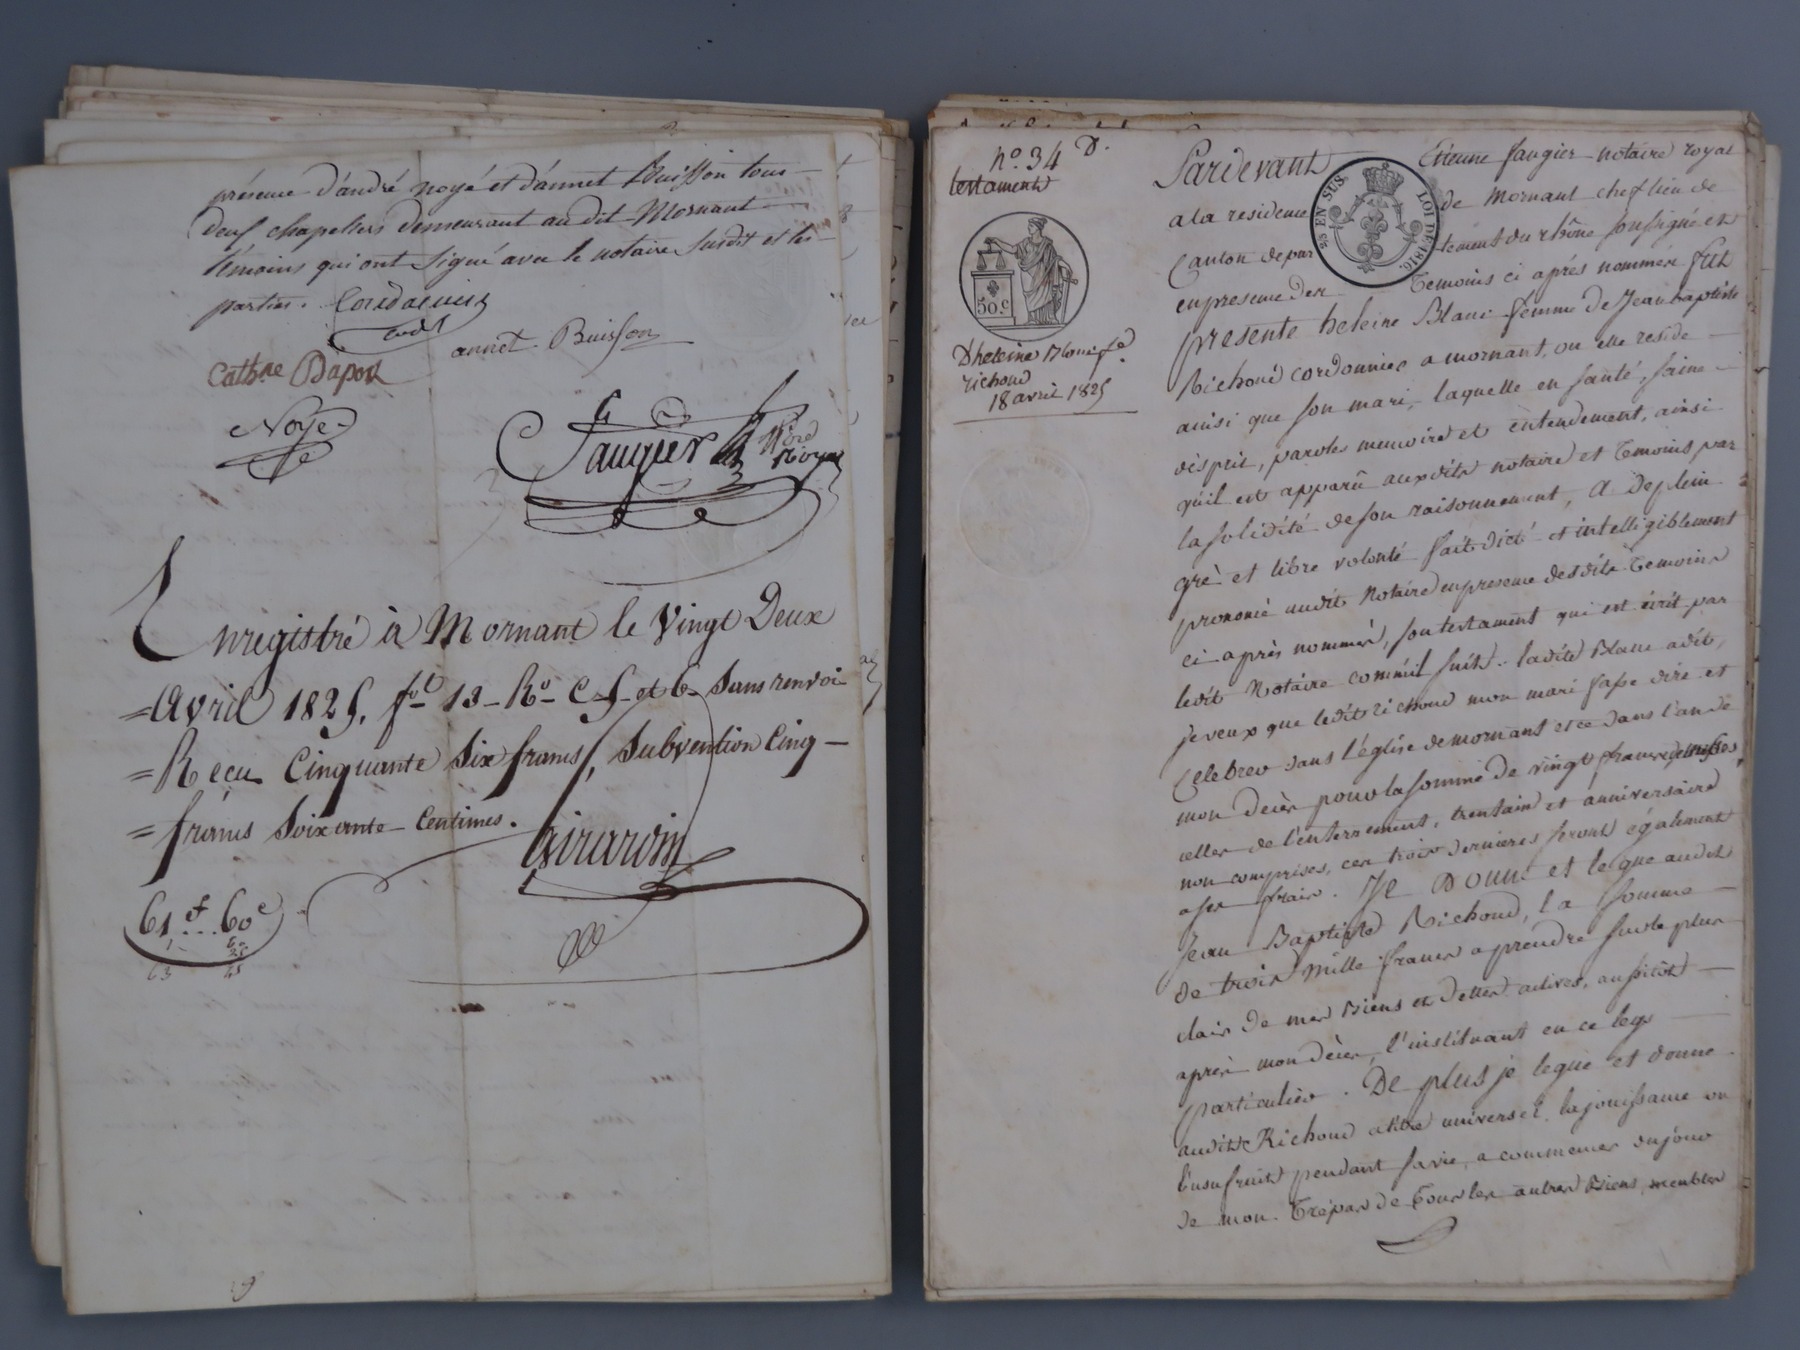 présence d'andré noyé et d'annet Buisson tous
deux chapeliers demeurant au dit Mornant
témoins qui ont signé avec le notaire susdit et les
parties.
annet Buisson
Cathne Dapon
Noyé
Faugier
Nre
Royal
Enregistré à Mornant le Vingt Deux
Avril 1825, fol 13 Ro C 5 et 6 Sans renvoi
Reçu Cinquante Six francs, Subvention Cinq
francs Soixante Centimes.
Girardin
61f..60c
no. 34 D.
testament
50c
Dheleine Blanc fe
richoud
18 avril 1825
Pardevant Etienne faugier notaire royal
25 EN SUS. LOI DE 1816.
a la residence de Mornant chef lieu de
Canton depar tement du rhône soussigné et
en presence des Temoins ci après nommés fut
presente heleine Blanc femme de Jean baptiste
Richoud cordonnier a mornant, ou elle reside
ainsi que son mari, laquelle en santé, saine
d'esprit, paroles memoire et entendement, ainsi
qu'il est apparû auxdits notaire et Temoins par
la solidité de son raisonnement, A de plein
gré et libre volonté fait dicté et intelligiblement
prononcé audit Notaire en presence desdits Temoins
ci après nommés, son testament qui est écrit par
ledit Notaire comm'il suit. ladite Blanc a dit,
je veux que ledit richoud mon mari fasse dire et
Celebrer dans l'église de mornant et ce dans l'an de
mon décès pour la somme de vingt francs de messes,
celles de l'enterrement, trentain et anniversaire
non comprises, ces trois dernieres seront également
a ses frais. Je Donne et legue audit
Jean Baptiste Richoud, la somme
de trois mille francs a prendre sur le plus
clair de mes Biens et dettes actives, aussitôt
après mon décès, l'instituant en ce legs
particulier. De plus je legue et donne
audit Richoud a titre universel la jouissance ou
l'usufruit pendant sa vie, a commencer du jour
de mon Trépas de tous les autres Biens, meubles